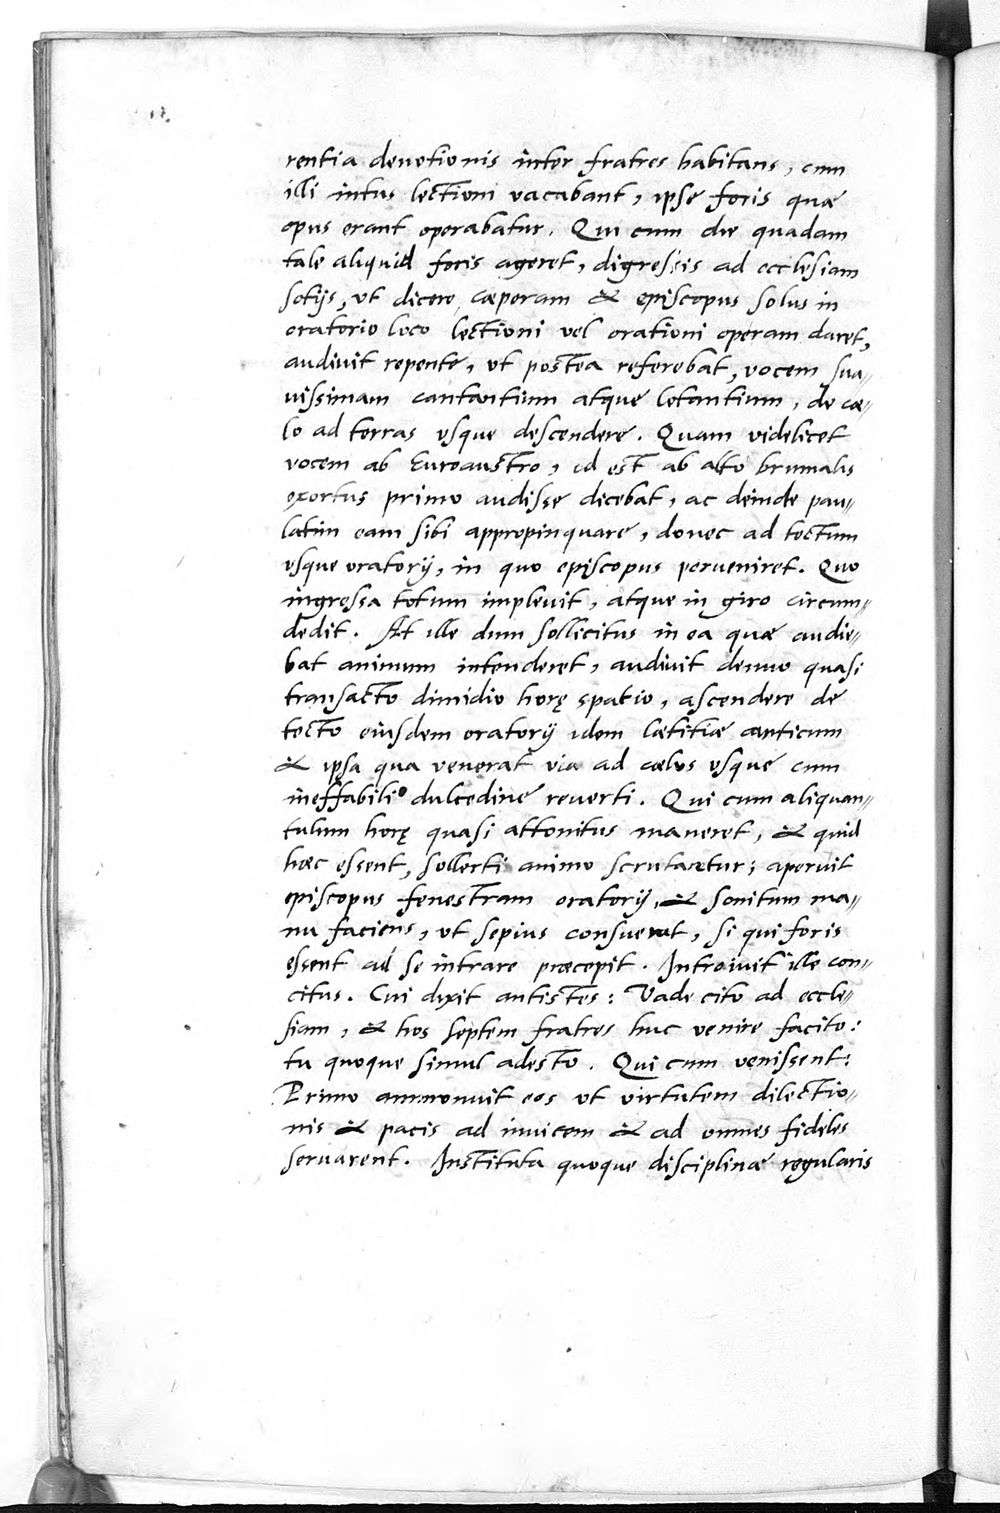 rentia deuotionis inter fratres habitans, cum
illi intus lectioni vacabant, ipse foris quæ
opus erant operabatur. Qui cum die quadam
tale aliquid foris ageret, digressis ad ecclesiam
sotijs, vt dicere cæperam & episcopus solus in
oratorio loco lectioni vel orationi operam daret,
audiuit repente, vt postea referebat, vocem sua„
uissimam cantantium atque letantium, de cæ„
lo ad terras vsque descendere. Quam videlicet
vocem ab Euroaustro, id est ab alto brumalis
exortus primo audisse dicebat, ac deinde pau„
latim eam sibi appropinquare, donec ad tectum
vsque oratorij, in quo episcopus perueniret. Quo
ingressa totum impleuit, atque in giro circum„
dedit. At ille dum sollicitus in ea quæ audie„
bat animum intenderet, audiuit denuo quasi
transacto dimidio horę spatio, ascendere de
tecto eiusdem oratorij idem lætitiæ canticum
& ipsa qua venerat via ad cælos vsque cum
ineffabili dulcedine reuerti. Qui cum aliquan„
tulum horę quasi attonitus maneret, & quid
hæc essent, sollerti animo scrutaretur; aperuit
episcopus fenestram oratorij, & sonitum ma„
nu faciens, vt sepius consuerat, si qui foris
essent ad se intrare præcepit. Introiuit ille con„
citus. Cui dixit antistes: Vade cito ad eccle„
siam, & hos septem fratres huc venire facito:
tu quoque simul adesto. Qui cum venissent:
Primo ammonuit eos vt virtutem dilectio„
nis & pacis ad inuicem & ad omnes fideles
seruarent. Instituta quoque disciplinæ regularis